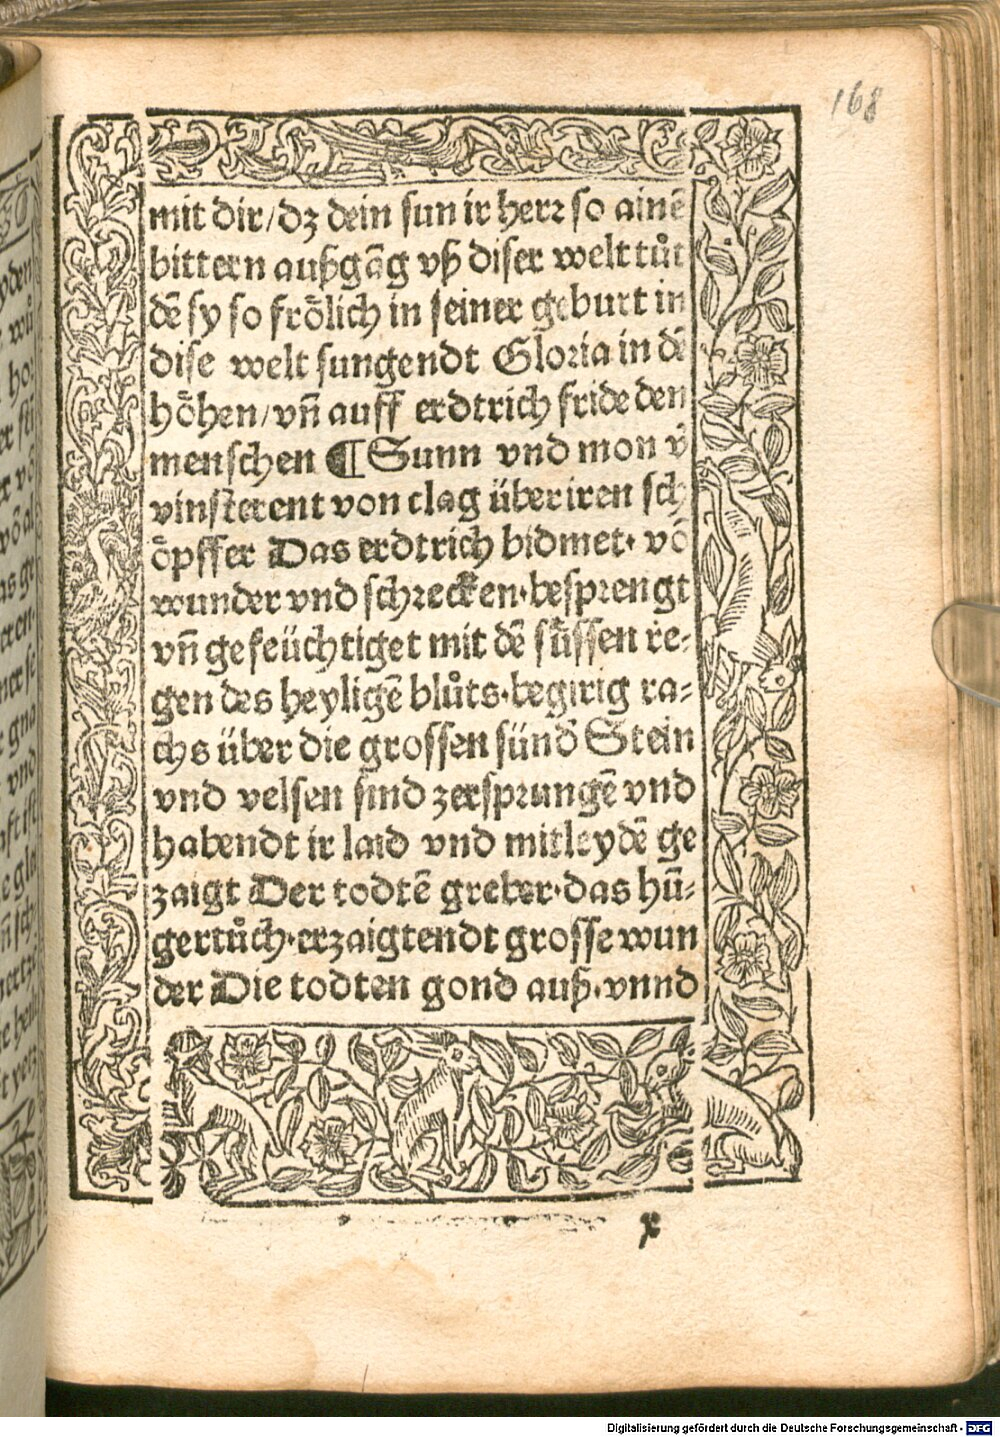 168
mit dir/ dz dein sun ir herꝛ so ainē
bittern außgāg vß diser welt tůt
dē sy so froͤlich in seiner geburt in
dise welt sungendt Gloꝛia in dē
hoͤhen/ vñ auff erdtrich fride den
menschen ¶ Sunn vnd mon v̄
vinsterent von clag über iren sch
oͤpffer Das erdtrich bidmet· vō
wunder vnd schꝛecken· bespꝛengt
vñ gefeüchtiget mit dē suͤssen re⸗
gen des heyligē blůts· begirig ra⸗
chs über die grossen sünd̄ Stein
vnd velsen sind zerspꝛungē vnd
habendt ir laid vnd mitleydē ge
zaigt Der todtē greber· das hū⸗
gertůch· erzaigtendt grosse wun
der Die todten gond auß· vnnd
x
Digitalisierung gefördert durch die Deutsche Forschungsgemeinschaft - DFG